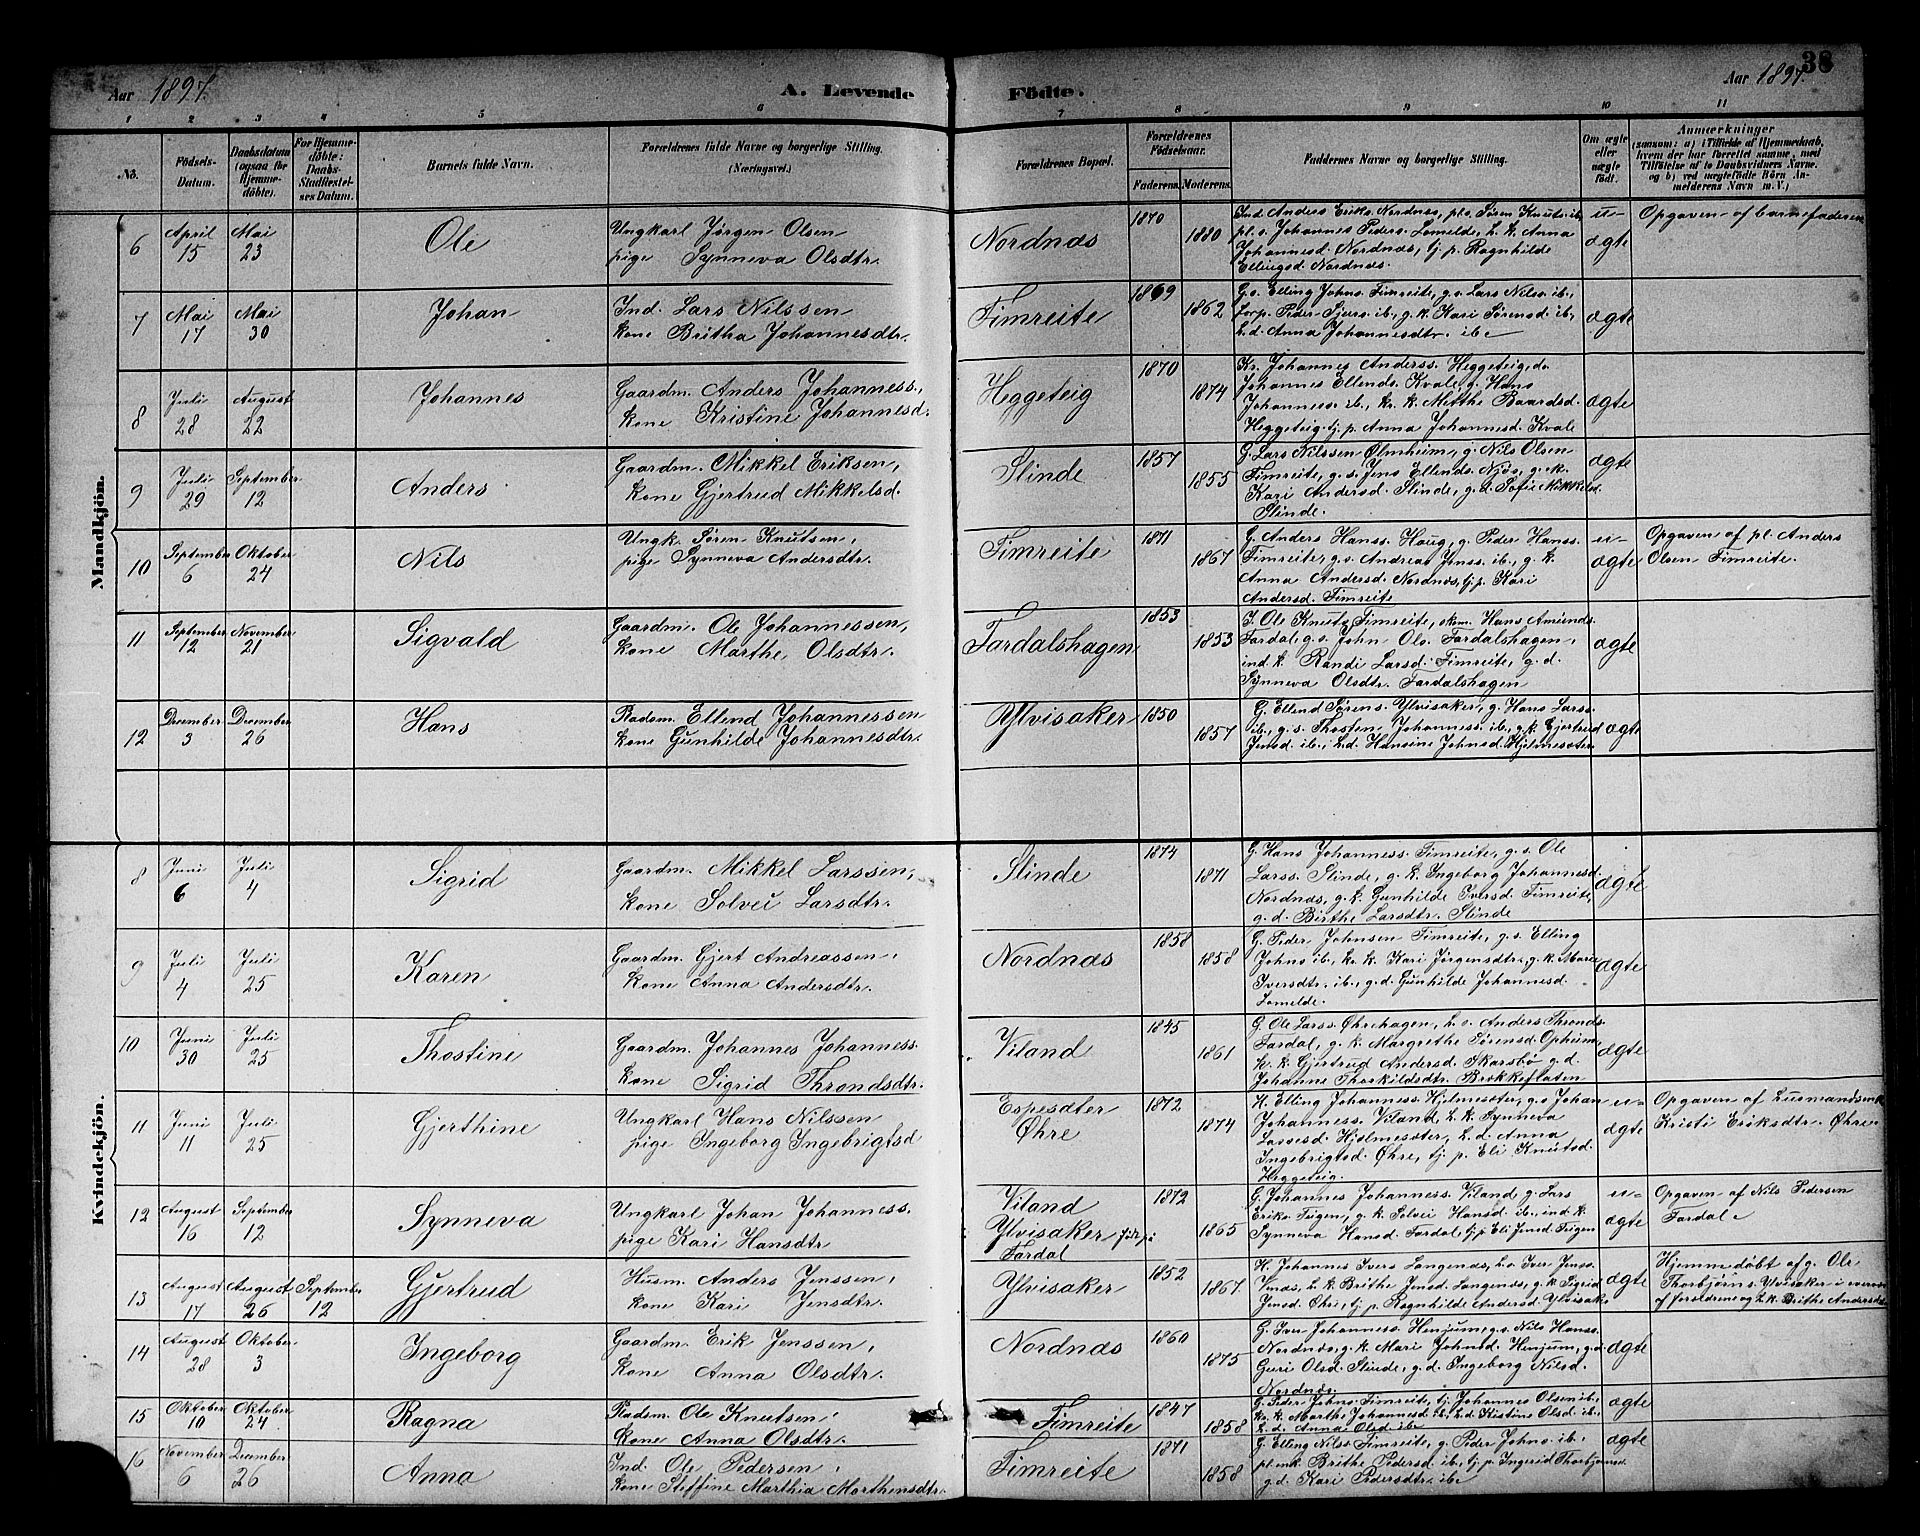 38
Aar 1897.
A. Levende Födte.
Aar 1897.
1 2 3 4 5 6 7 8 9 10 11
No.
Födsels-Datum.
Daabsdatum (ogsaa for Hjemmedöbte).
For Hjemmedöbte: Daabs-Stadfæstelses Datum.
Barnets fulde Navn.
Forældrenes fulde Navne og borgerlige Stilling. (Næringsvei.)
Forældrenes Bopæl.
Forældrenes Födselsaar.
Faderens. Moderens.
Faddernes Navne og borgerlige Stilling.
Om ægte eller uægte födt.
Anmærkninger
(saasom: a) i Tilfælde af Hjemmedaab, hvem der har forrettet samme, med Tilföielse af to Daabsvidners Navne, og b) ved uægtefödte Börn Anmelderens Navn m. V.)
Mandkjön.
6 April 15 Mai 23 Ole
Ungkarl Jørgen Olsen
pige Synneva Olsdtr.
Nordnæs 1870 1880
Ind. Anders Eriks. Nordnæs, pl. s. Søren Knuts. ib.
pl. s. Johannes Peders. Lomelde, h. k. Anna
Johannesd. Nordnæs, tj. p. Ragnhilde
Ellingsd. Nordnæs.
u-ægte
Opgaven af barnefaderen
7 Mai 17 Mai 30 Johan
Ind. Lars Nilssen
kone Britha Johannesdtr.
Timreite 1869 1862
G. s. Elling Johns. Timreite, g. s. Lars Nilss. ib.,
forp. Peder Sjurs. ib., g. k. Kari Sørensd. ib.,
h. d. Anna Johannesdtr. ib.
ægte
8 Juli 28 August 22 Johannes
Gaardm. Anders Johanness.,
kone Kristine Johannesd.
Heggeteig 1870 1874
Kr. Johannes Anderss. Heggeteig, do
Johannes Ellends. Kvale, g. Hans
Johanness. ib., kr. k. Mitthe Baardsd.
Heggeteig, tj. p. Anna Johannesd. Kvale
ægte
9 Juli 29 September 12 Anders
Gaardm. Mikkel Eriksen,
kone Gjertrud Mikkelsd.
Slinde 1857 1855
G. Lars Nilssen Ølmheim, g. Nils Olsen
Timreite, g. s. Jens Ellends. Njøs, g. k.
Kari Andersd. Slinde, g. d. Sofie Mikkelsd.
Slinde.
ægte
10 September 6 Oktober 24 Nils
Ungk. Søren Knutsen,
pige Synneva Andersdtr.
Timreite 1871 1867
G. Anders Hanss. Haug, g. Peder Hanss.
Timreite, g. s. Andreas Jenss. ib., g. k.
Anna Andersd. Nordnæs, tj. p. Kari
Andersd. Timreite
u-ægte
Opgaven af pl. Anders
Olsen Timreite.
11 September 12 November 21 Sigvald
Gaardm. Ole Johannessen,
kone Marthe Olsdtr.
Fardalshagen 1853 1853
I. Ole Knuts. Timreite, skm. Hans Amunds.
Fardal, g. s. John Ols. Fardalshagen,
ind. k. Randi Larsd. Timreite, g. d.
Synneva Olsdtr. Fardalshagen
ægte
12 December 3 December 26 Hans
Pladsm. Ellend Johannessen
kone Gunhilde Johannesdtr.
Ylvisaker 1850 1857
G. Ellend Sørens. Ylvisaker, g. Hans Larss.
ib., g. s. Thosten Johanness. ib., g. k. Gjertrud
Jensd. ib., h. d. Hansine Johnsd. Hjelmesæter
ægte
Kvindekjön.
8 Juni 6 Juli 4 Sigrid
Gaardm. Mikkel Larssen,
kone Solvei Larsdtr.
Slinde 1874 1871
G. Hans Johanness. Timreite, g. s. Ole
Larss. Slinde, g. k. Ingeborg Johannesd.
Nordnæs, g. k. Gunhilde Iversd. Timreite,
g. d. Birthe Larsdtr. Slinde
ægte
9 Juli 4 Juli 25 Karen
Gaardm. Gjert Andreassen,
kone Anna Andersdtr.
Nordnæs 1858 1858
G. Peder Johnsen Timreite, g. s. Elling
Johns. ib., h. k. Kari Jørgensdtr., g. k. Maria
Iversdtr. ib., g. d. Gunhilde Johannesd.
Lomelde.
ægte
10 Juni 30 Juli 25 Thostine
Gaardm. Johannes Johanness.
kone Sigrid Throndsdtr.
Viland 1845 1861
G. Ole Larss. Øhrehagen, h. s. Anders Thronds.
Fardal, g. k. Margrethe Sørensd. Opheim,
h. k. Gjertrud Andersd. Skarsbø g. d.
Johanne Thorkildsdtr. Brekkeflaten
ægte
11 Juni 11 Juli 25 Gjerthine
Ungkarl Hans Nilssen
pige Ingeborg Ingebrigtsd
Espesæter
Øhre 1872 1874
H. Elling Johanness. Hjelmesæter, g. s Johan
Johanness. Viland, h. k. Synneva
Lassesd. Hjelmesæter, h. d. Anna
Ingebrigtsd. Øhre, tj. p. Eli Knutsd.
Heggeteig.
u-ægte
Opgaven af husmandsenk.
Kristi Eriksdtr. Øhre
12 August 16 September 12 Synneva
Ungkarl Johan Johanness.
pige Kari Hansdtr
Viland
Ylvisaker før på
Fardal 1872 1865
G. Johannes Johanness. Viland g. Lars
Eriks. Teigen, g. k. Solvei Hansd. ib., ind. k.
Synneva Hansd. Fardal, tj. p. Eli Jensd. Teigen
u-ægte
Opgaven af Nils Pedersen
Fardal.
13 August 17 August 26 September 12 Gjertrud
Husm. Anders Jenssen,
kone Kari Jensdtr.
Ylvisaker 1852 1867
H. Johannes Ivers. Langenæs, h. s. Iver Jenss.
Venæs, h. k. Brithe Jensd. Langenæs, g. k. Sigrid
Jensd. Øhre, tj. p. Ragnhilde Andersd. Ylvisaker
ægte
Hjemmedøbt af g. Ole
Thorbjørns. Ylvisaker i overvær
af forældrene og h. k. Brithe Andersdtr.
14 August 28 Oktober 3 Ingeborg
Gaardm. Erik Jenssen,
kone Anna Olsdtr.
Nordnæs 1860 1875
G. Iver Johanness. Henjum, g. s. Nils Hanss.
Nordnæs, g. k. Mari Johnsd. Henjum, g. d.
Guri Olsd. Slinde, g. d. Ingeborg Nilsd.
Nordnæs.
ægte
15 Oktober 10 Oktober 24 Ragna
Pladsm. Ole Knutsen,
kone Anna Olsdtr.
Timreite 1847 1858
G. Peder Johns. Timreite, tj. Johannes Olsen ib.,
kr. k. Marthe Johannesd. ib., h. d. Kistine Olsd. ib.,
h. d. Anna Olsd. ib.
ægte
16 November 6 December 26 Anna
Ind. Ole Pedersen,
kone Steffine Marthia Morthensdtr.
Timreite 1871 1858
G. Elling Nilss. Timreite, g. Peder Johns. ib.,
pl. enk. Brithe Pedersd. ib., tj. p. Ingerid Thorbjørnsd.
g. d. Kari Pedersdtr. ib.
ægte